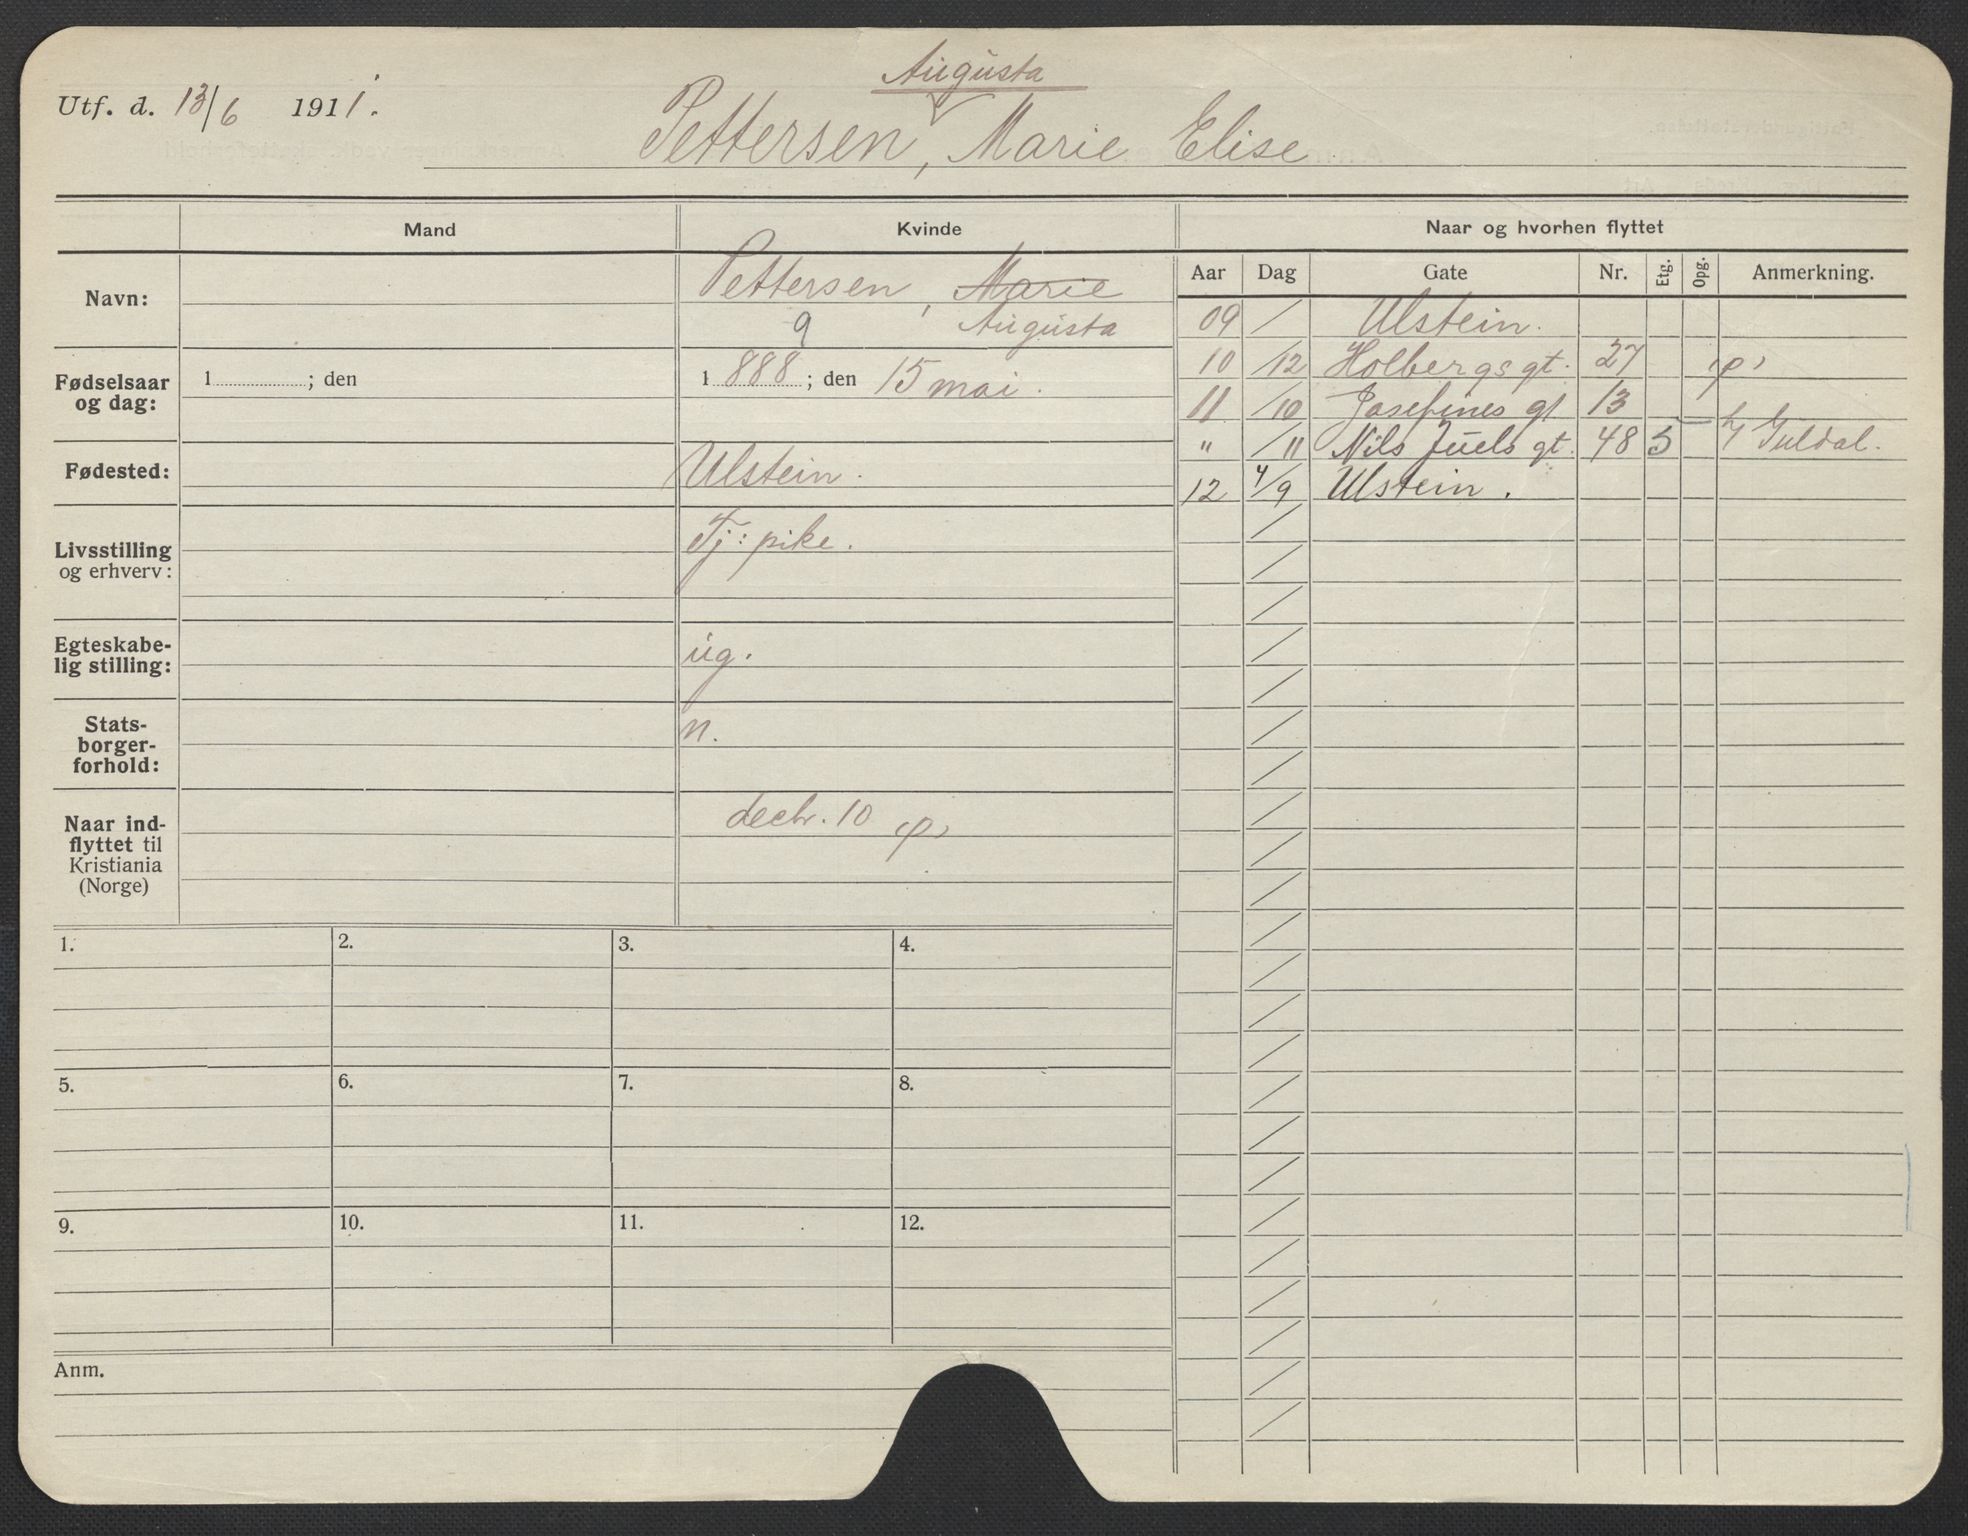 Augusta
Utf. d. 13/6 1911.
Pettersen, Marie Elise
Mand Kvinde Naar og hvorhen flyttet
Navn:
Pettersen, Marie
9 Augusta
Fødselsaar
og dag:
1 ; den
1888 ; den 15 mai.
Fødested:
Ulstein.
Livsstilling
og erhverv:
Tj: pike.
Egteskabe-
lig stilling:
ug.
Stats-
borger-
forhold:
n.
Naar ind-
flyttet til
Kristiania
(Norge)
decbr. 10
Aar Dag Gate Nr. Etg. Opg. Anmerkning.
09 / Ulstein.
10 /12 Holbergs gt. 27
11 /10 Josefines gt 13
" /11 Nils Juels gt. 48 5 Guldal.
12 4/9 Ulstein.
1. 2. 3. 4.
5. 6. 7. 8.
9. 10. 11. 12.
Anm.